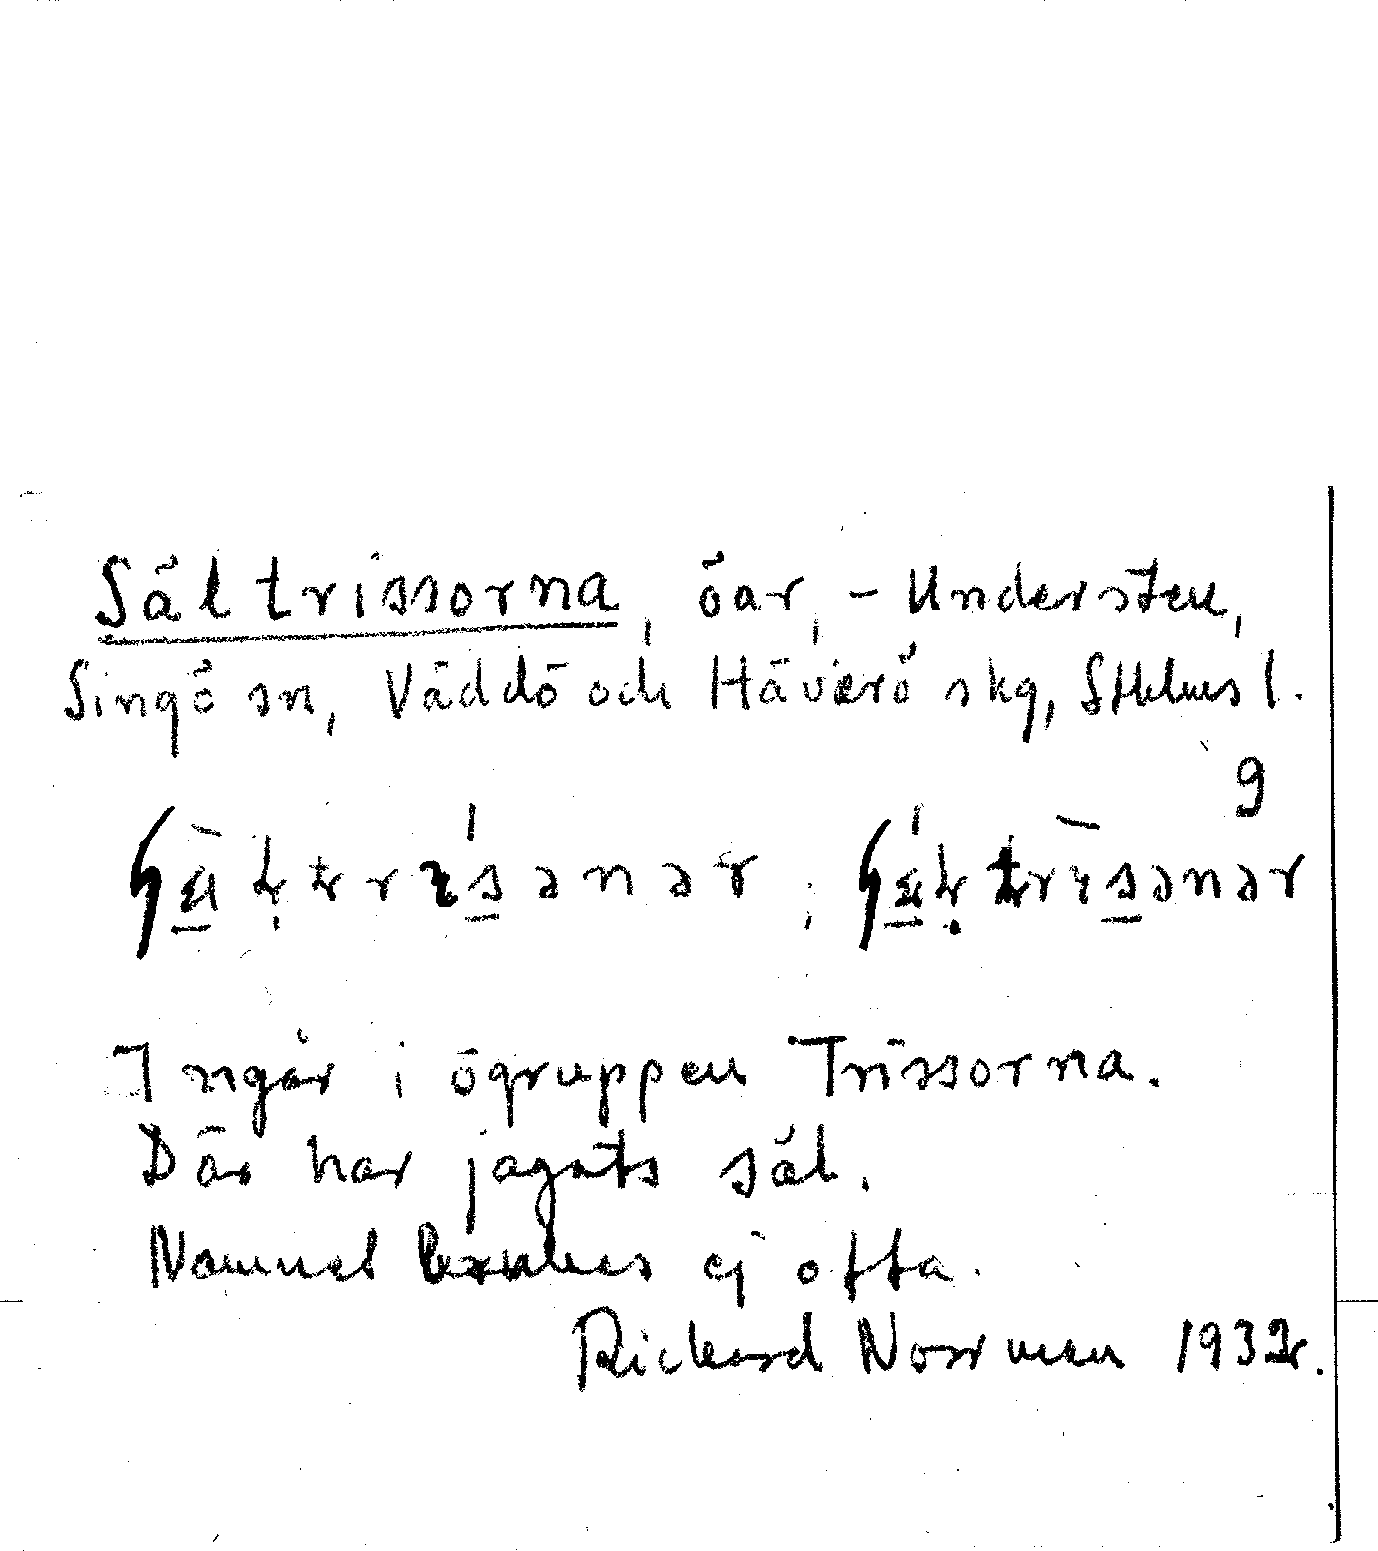 Sältrissorna, öar, – Understen,
Singö sn, Väddö och Häverö skg, Sthlms l.
9
Ingår i ögruppen Trissorna.
Där har jagats säl.
Namnet brukas ej ofta.
Rickard Norrman 1932.